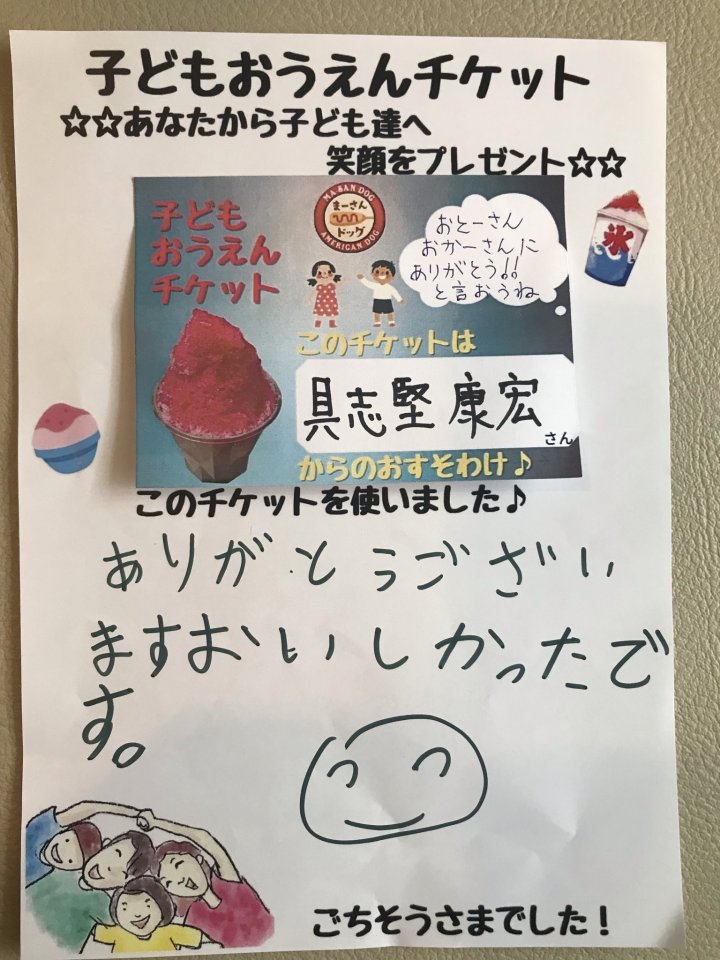 子どもおうえんチケット
☆☆あなたから子ども達へ
笑顔をプレゼント☆☆
子ども
おうえん
チケット
MA-SAN DOG
まーさん
ドッグ
AMERICAN DOG
おとーさん
おかーさんに
ありがとう!!
と言おうね
氷
このチケットは
具志堅 康宏
さん
からのおすそわけ♪
このチケットを使いました♪
ありがとうござい
ますおいしかったで
す。
ごちそうさまでした!